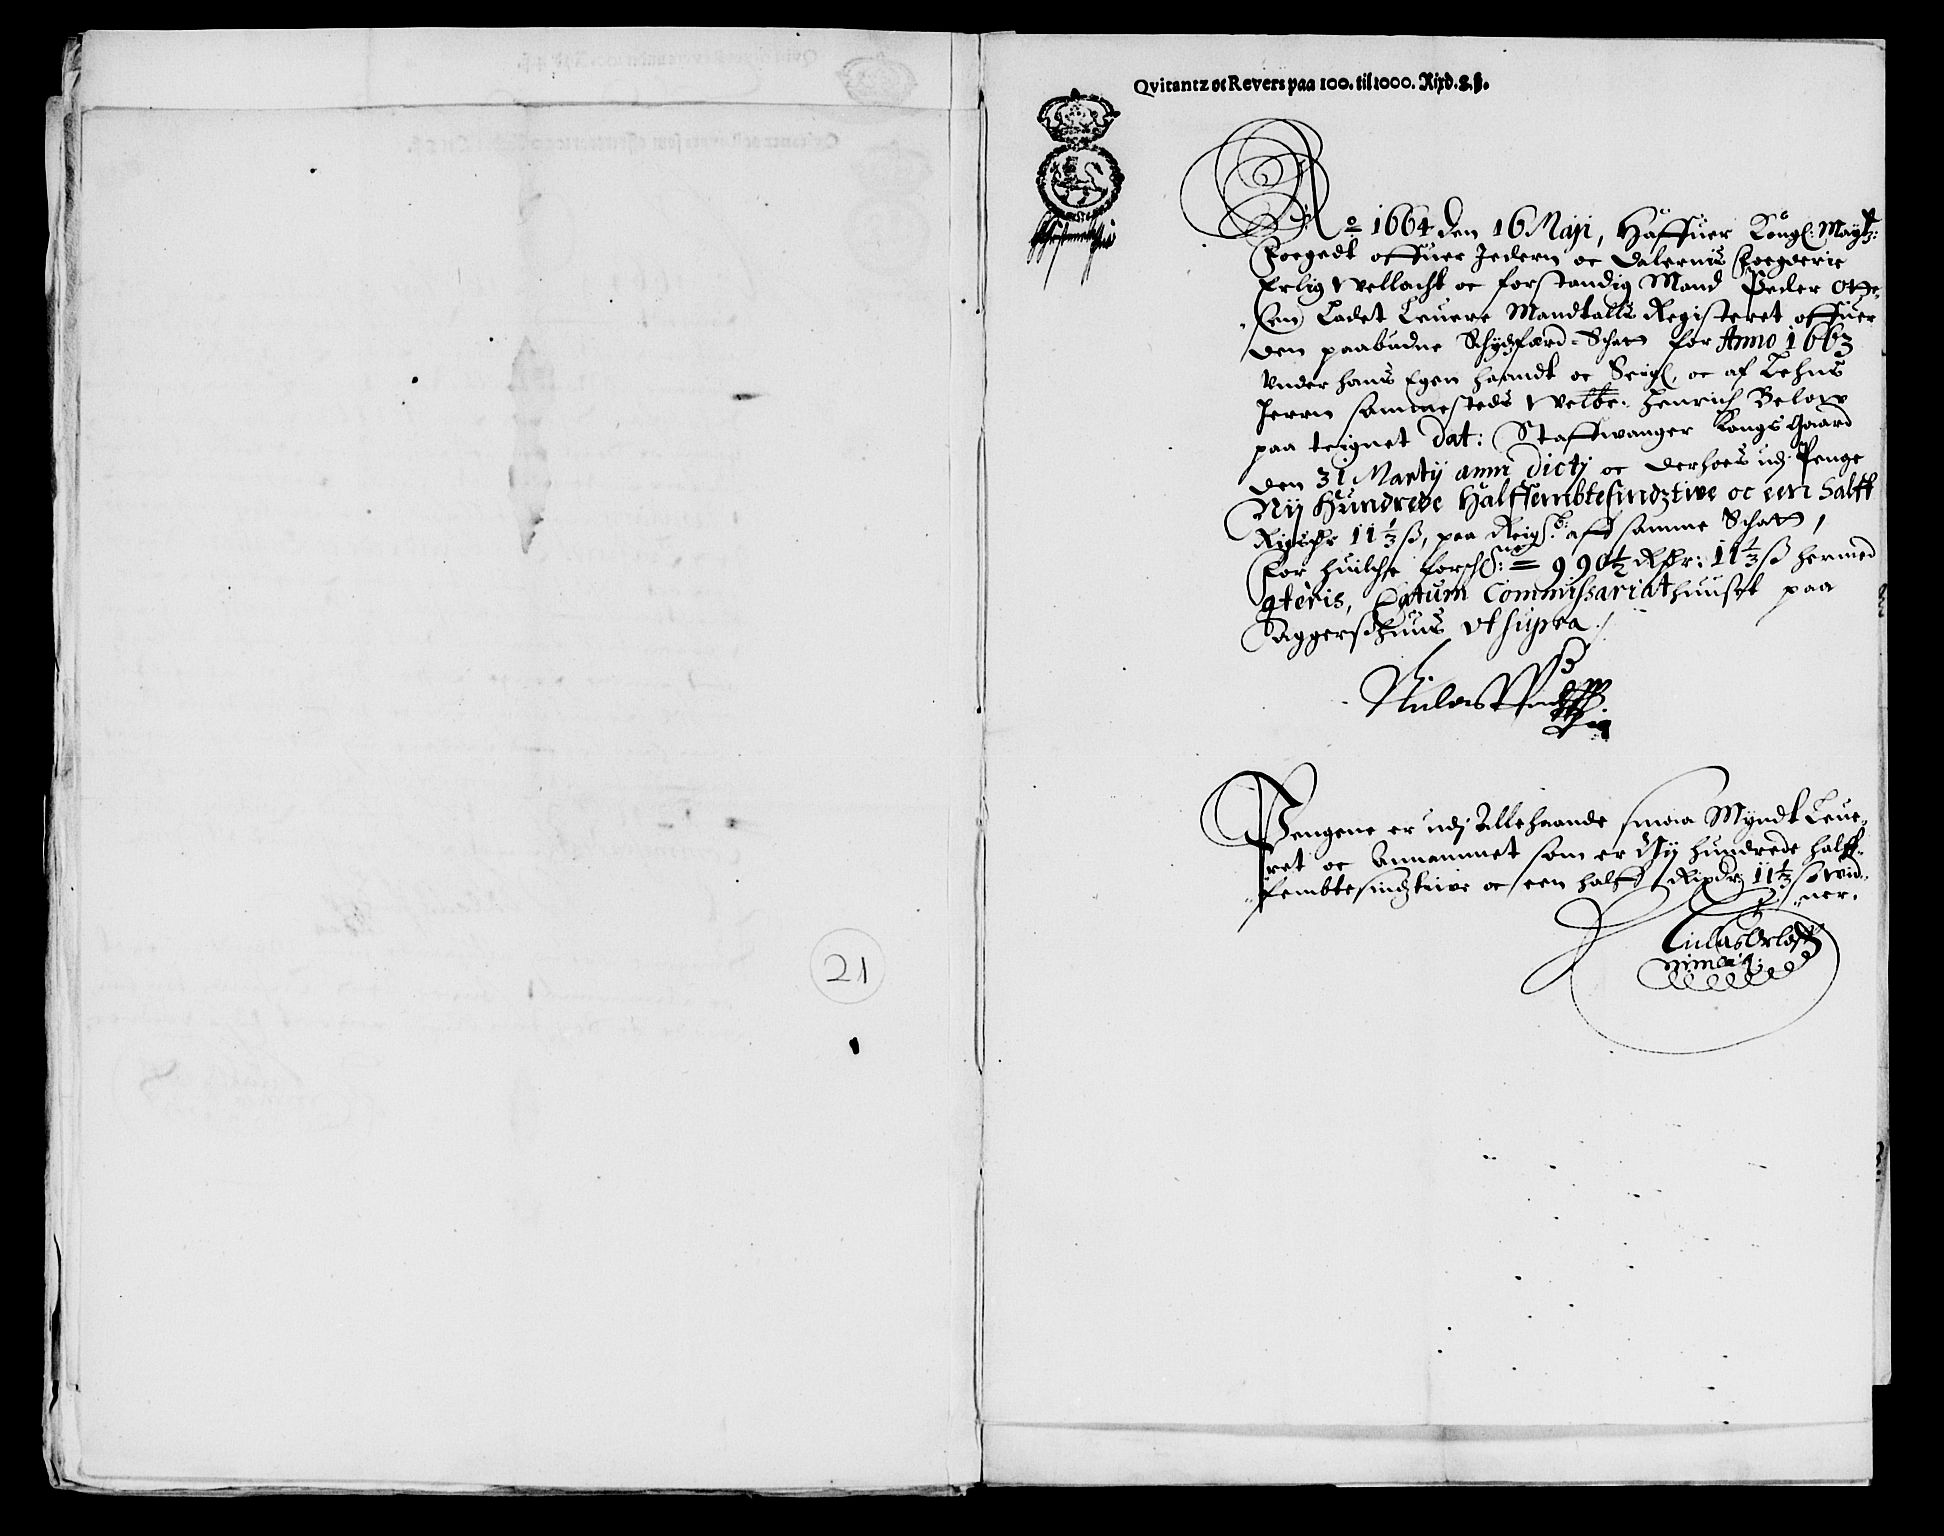 Qvitantz oc Revers paa 100. til 1000. Rixd. 8. ß.
Ao 1664 den 16 Maji, Haffuer Kongl: Maytz:
Foegedt offuer Jedern oc Dalernis Foegderie
Erlig Wellacht oc forstandig Mand Peder Otte-
sen Ladet Leuere Mandtalls Registeret offuer
den paabudne Schydzferd-Schatt for Anno 1663
Vnder hans Egen haandt oc Seigl, oc af Lehns
Herrn sammesteds Welbr: Henrich Below
paa teignet dat: Staffwanger Kongsgaard
den 31 Martij anni dictj oc derhoes udj Penge
Nij Hundrede Halffembtesindztiue oc een halff
Rixdr 11⅓ ß, paa Reigsb: aff samme Schatt,
For huilche forschne: = 990½ Rdr: 11⅓ ß hermed
qteris, Datum Commissariathuuset paa
Aggerschuus Vt supra.
Pengene er udj Allehaande smaa Myndt Leue-
ret oc Annammet som er Nij hundrede halff-
fembtesindztiue oc een halff Rixdr 11⅓ ß Wid-
ner.
21